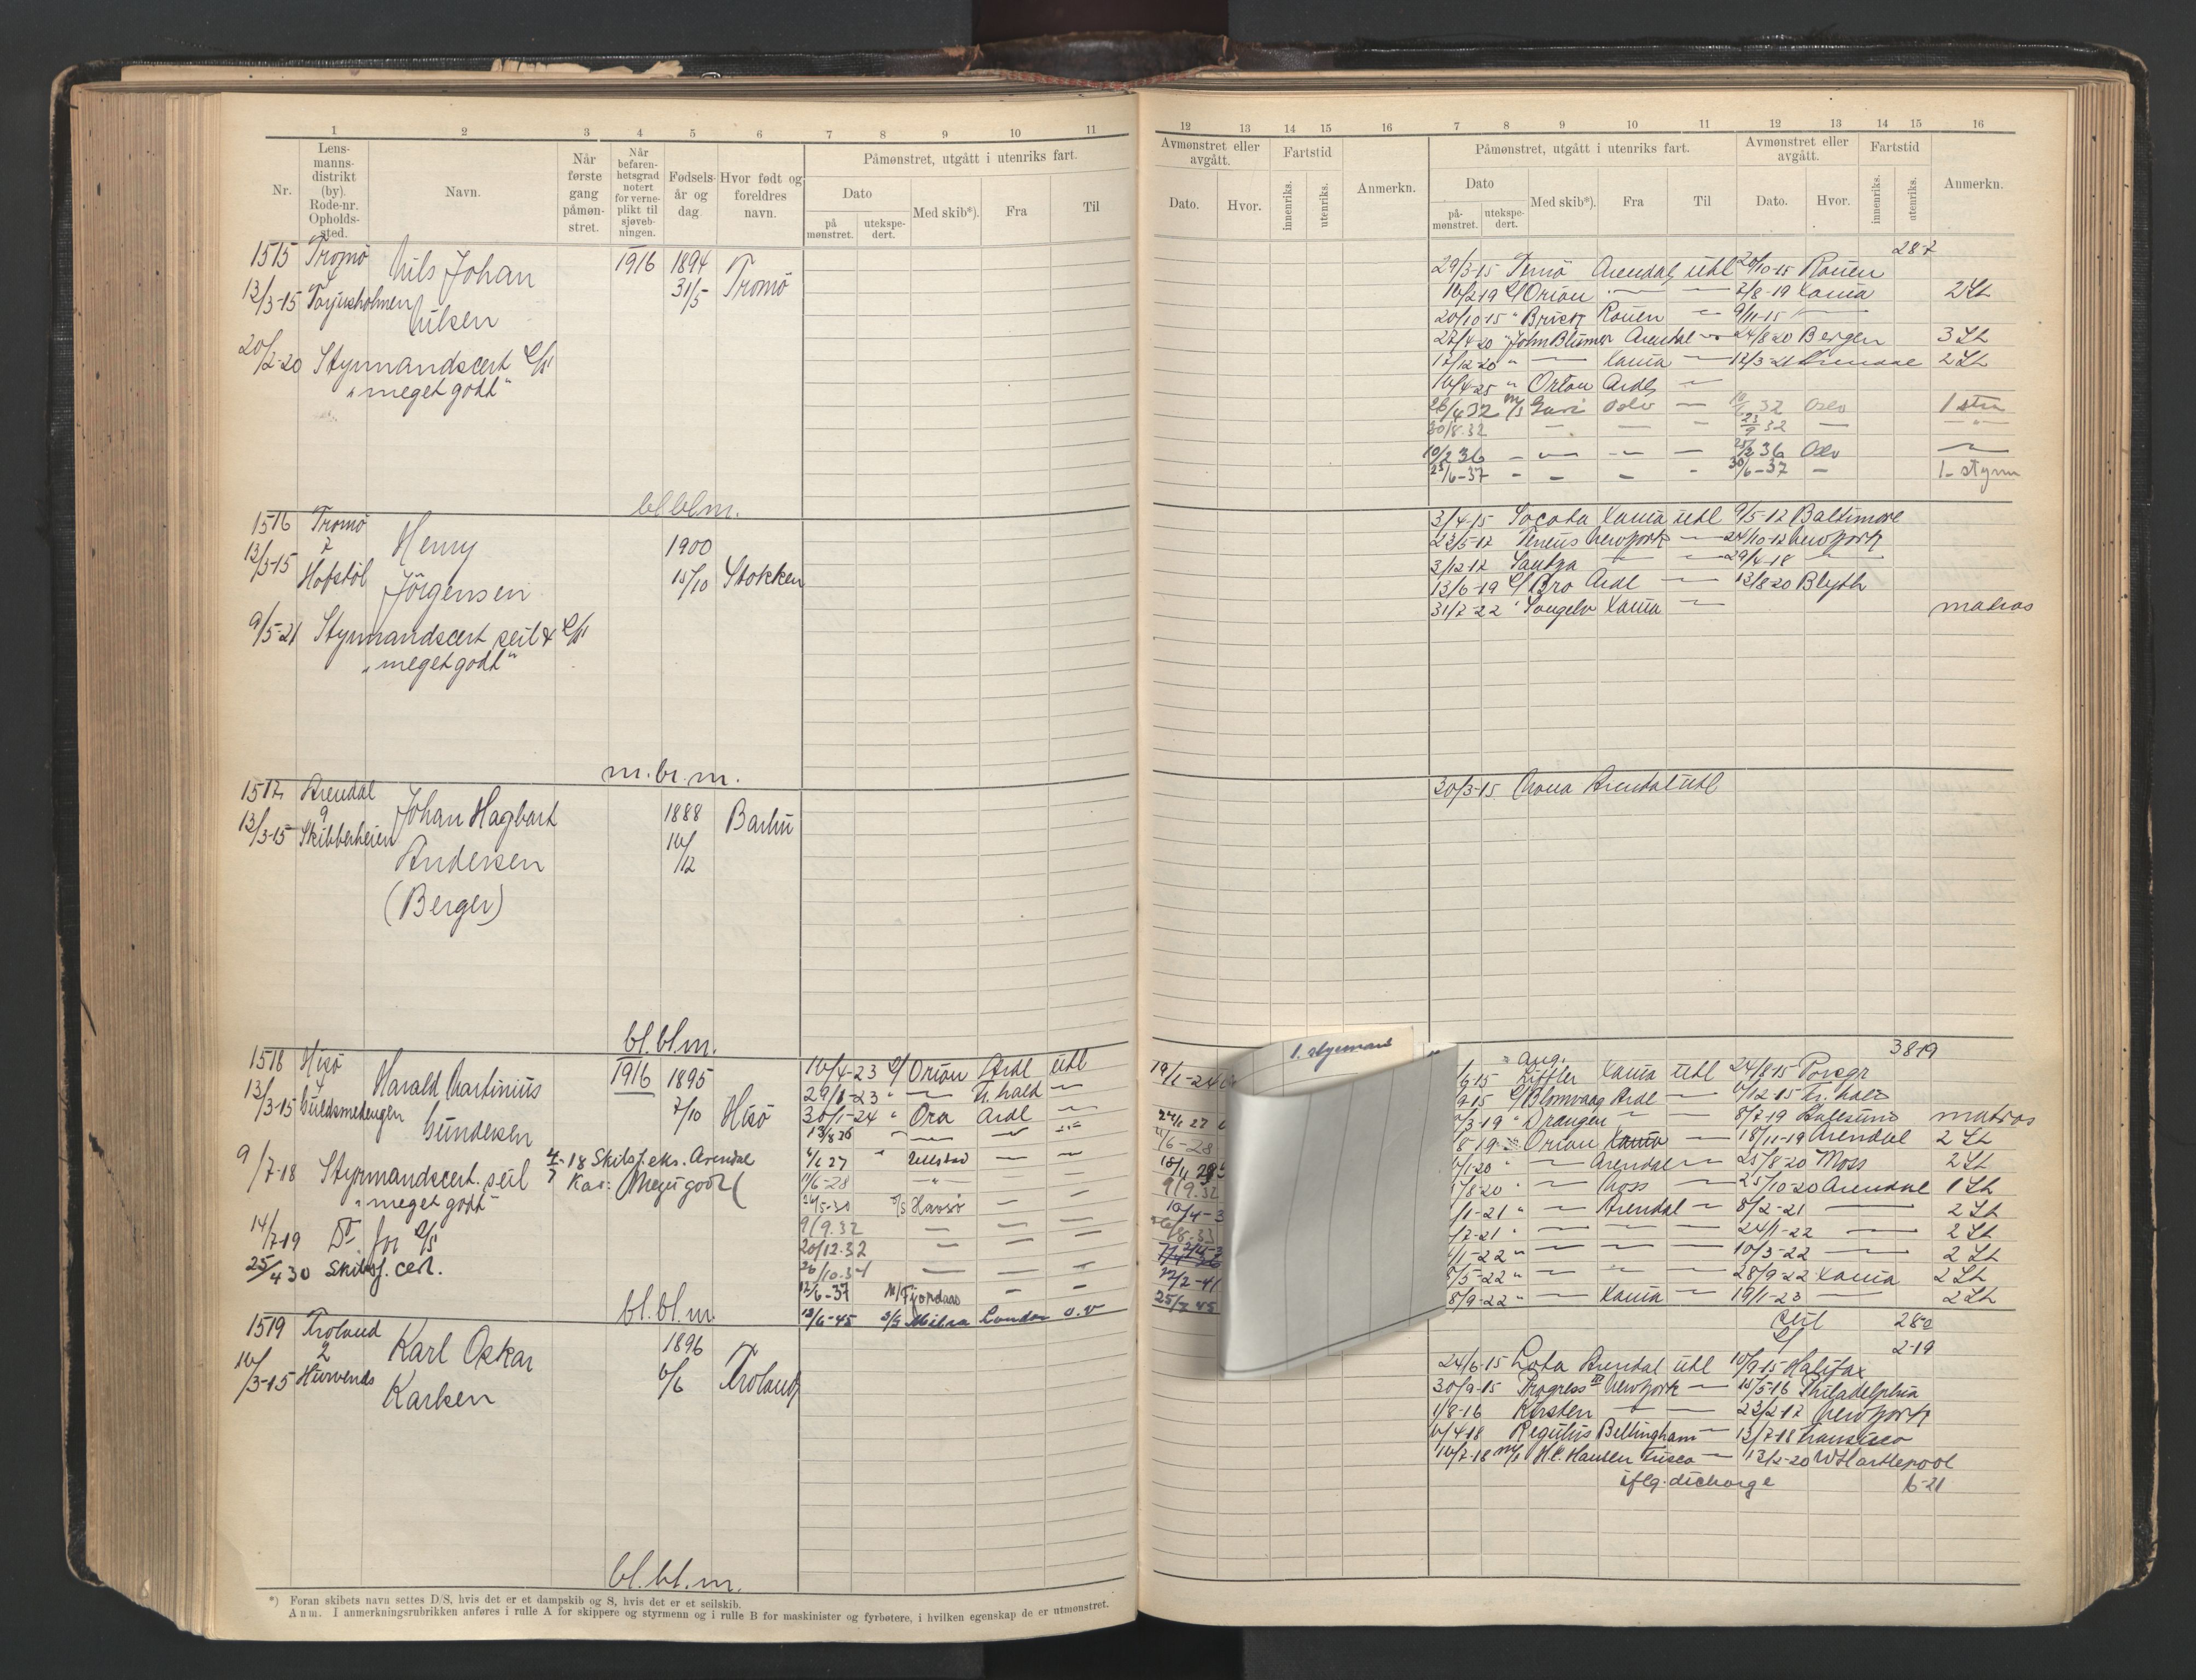 1 2 3 4 5 6 7 8 9 10 11
Nr.
Lens-
manns-
distrikt
(by).
Rode-nr.
Opholds-
sted.
Navn.
Når
første
gang
påmøn-
stret.
Når
befaren-
hetsgrad
notert
for verne-
plikt til
sjøveb-
ningen.
Fødsels-
år og
dag
Hvor født og
foreldres
navn.
Påmønstret, utgått i utenriks fart.
Dato
på
mønstret.
utekspe-
dert.
Med skib*).
Fra
Til
1515 Tromö Nils Johan 1916 1894
4
13/3-15 Torjusholmen Nilsen 31/5 Tromö
20/2-20 Styrmandscert D/S
"meget godt"
bl.bl.m.
1516 Tromö Henry 1900
7
13/3-15 Hofstöl Jörgensen 15/10 Stokken
9/5-21 Styrmandscert seil & D/S
"meget godt"
m.bl.m.
1517 Arendal Johan Hagbart 1888 Barbu
9
13/3-15 Skibberheien Andersen 14/12
(Berger)
bl.bl.m.
1518 Hisö Harald Martinius 1916 1895 16/4-23 D/ Orion Ardl utl
29/8-23 " — Fr.hald —
13/3-15 Guldsmedengen Gundersen 7/10 Hisö 30/1-24 " Ora Ardl —
13/8 26 " — — —
9/7-18 Styrmandscert. seil 4/7-18 Skibsf.eks. Arendal 4/6 27 " Ullstad — —
"meget godt" Kar: Meget godt 11/6-28 — " —
24/5-30 D/S Havsö — —
14/7-19 Do for D/S 9/9.32 — — —
20/12.32 — — —
25/4 30 Skibsf. cert. 26/10.34 — — —
12/6-37 M/ Fjordaas — —
bl.bl.m. 13/6-45 D/S Milra London u.v
1519 Froland Karl Oskar 1896
2
16/3-15 Hurvends Karlsen 6/6 Froland
bl.bl.m.
*) Foran skibets navn settes D/S, hvis det er et dampskib og S, hvis det er et seilskib.
Anm. I anmerkningsrubrikken anføres i rulle A for skippere og styrmenn og i rulle B for maskinister og fyrbøtere, i hvilken egenskap de er utmønstret.
12 13 14 15 16 7 8 9 10 11 12 13 14 15 16
Avmønstret eller
avgått.
Dato.
Hvor.
Fartstid
innenriks.
utenriks.
Anmerkn.
Påmønstret, utgått i utenriks fart.
Dato
på-
mønstret.
utekspe-
dert.
Med skib*).
Fra
Til
Avmønstret eller
avgått.
Dato.
Hvor.
Fartstid
innenriks.
utenriks.
Anmerkn.
28-7
29/3-15 Ternö Arendal utl 20/10-15 Rouen
10/2-19 D/ Orion — — 2/8-19 Xania 2 St
20/10-15 " Brisk Rouen — 9/11-15 —
27/4-20 " John Blumer Arendal — 24/8 20 Bergen 3 St
17/12-20 " — Xania — 12/3-21 Arendal 2 St
16/4-25 " Orion Ardl —
26/4 32 M/S Guri Oslo — 32 Oslo 1 stm
30/8.32 — — — 23/9 32 — — " —
10/2 36 — — — — 25/2 36 Oslo —
23/6-37 — — — — 30/6-37 — 1- styrm
3/4-15 Socota Xania utl 9/5-17 Baltimore
23/5-17 Newyork — 24/10-17 Newyork
3/12-17 — — 29/4-18 —
13/6-19 D/ Bro Ardl — 13/8 20 Blyth
31/7-22 " Songelv Xania — matros
20/3-15 Arendal utl
1. styrmand
19/1-24
24/1 27
11/6-28
18/11 29
9/9.32
10/4-3
26/8.33
22/2-41
25/7 45
3 8 19
Aug.
6-15 Xania utl 24/8-15 Porsgr
9-15 D/ Blomvaag Ardl — 6/12-15 Fr. hald
3-19 " Draugen — — 8/7-19 matros
8-19 Orion Xania — 18/11-19 Arendal 2 St
1-20 " — Arendal — 25/8-20 Moss 2 St
8-20 " — Moss — 25/10-20 Arendal 1 St
1-21 " — Arendal — 8/2-21 — 2 St
2-21 " — — — 24/1-22 — 2 St
1-22 " — — — 10/3-22 — 2 St
5-22 " — — — 28/9-22 Xania 2 St
8/9-22 " — Xania — 19/1-23 — 2 St
seil 28-0
D/ 2-19
24/6-15 Lota Arendal utl 10/9-15 Halifax
30/9-15 Progress Newyork — 15/5-16 Philadelphia
1/8-16 Kirsten — — 23/2-17 Newyork
6/4-18 Regulus Bellingham — 13/7-18 Fransisco
16/7-18 M/S H.C. Hansen Frisco — 13/2-20 W Hartlepool
iflg. dicharge 6-21